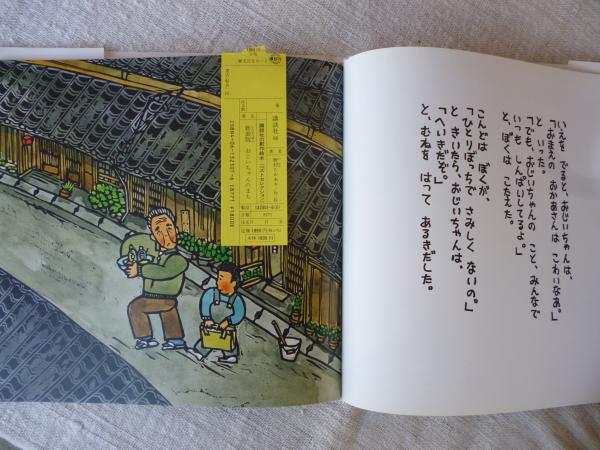 いえを でると、おじいちゃんは、
「おまえの おかあさんは こわいなあ。」
と いった。
「でも、おじいちゃんの こと、みんなで
いつも しんぱいしてるよ。」
と、ぼくは こたえた。
こんどは ぼくが、
「ひとりぼっちで さみしく ないの。」
と きいたら、おじいちゃんは、
「へいきだぞ。」
と、むねを はって あるきだした。
講談社
おじいちゃんのまち